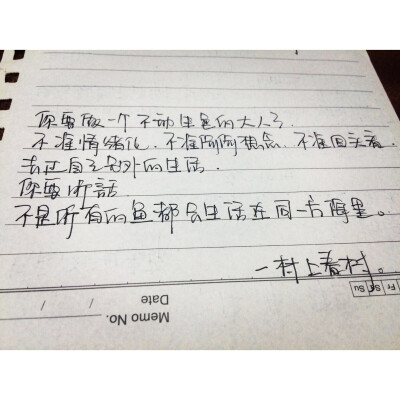 你要做一个不动声色的大人了
不准情绪化.不准偷偷想念.不准回头看.
去过自己另外的生活.
你要听話.
不是所有的鱼都会生活在同一片海里。
—村上春树。
Memo No.
Date / /
Fr Sa Su